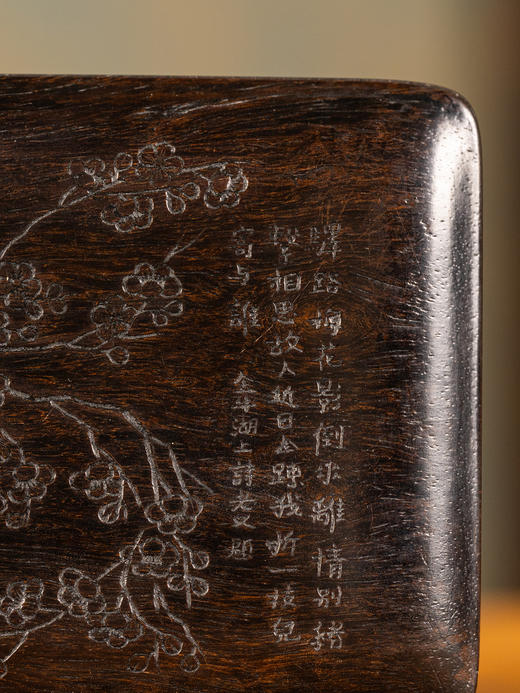 驛路梅花影倒垂離情別緒
繫相思故人近日全踈我折一枝兒
寄与誰 金牛湖上詩老又題